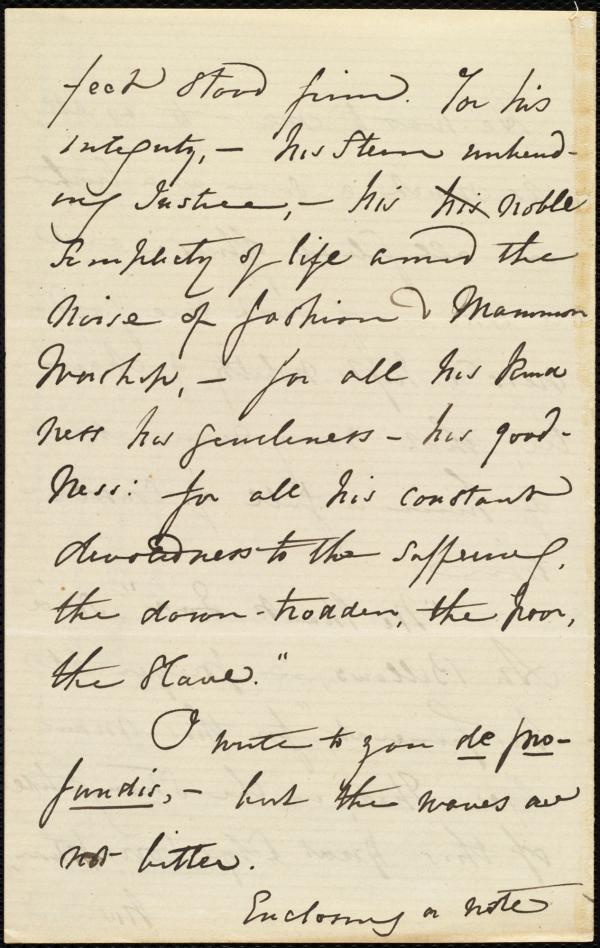 feet stood firm. For his
integrity, – his stern unbend-
ing Justice, – his his noble
simplicity of life amid the
noise of fashion & Mammon
Worship, – for all his kind
ness his gentleness – his good-
ness: for all his constant
devotedness to the suffering,
the down-trodden, the poor,
the slave."
I write to you de pro-
fundis, – but the waves are
not bitter.
Enclosing a note